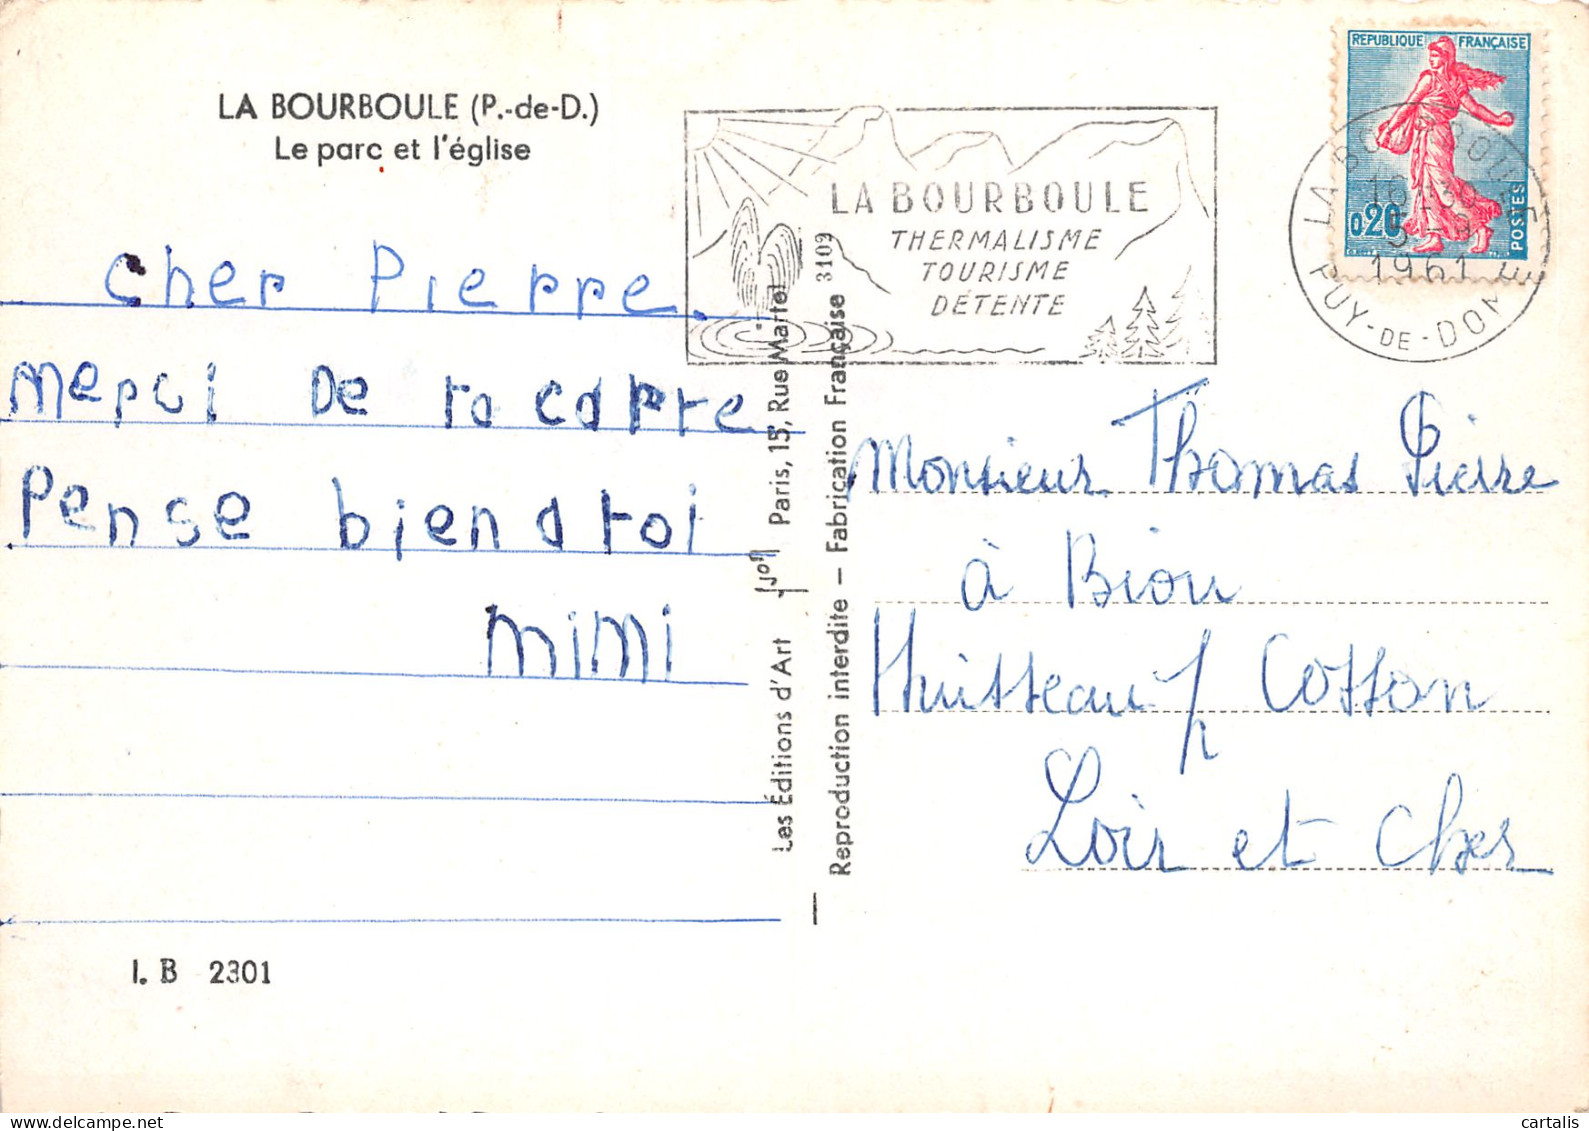 LA BOURBOULE (P.-de-D.)
Le parc et l'église
cher Pierre.
merci De ta carre
Pense bien a toi
mimi
I. B 2301
Les Éditions d'Art Yvon Paris, 15, Rue Martel
Reproduction interdite — Fabrication Française 3109
LA BOURBOULE
THERMALISME
TOURISME
DÉTENTE
REPUBLIQUE FRANÇAISE
0,20
POSTES
LA BOURBOULE
16 H 30
5 - 9
1961
PUY-DE-DOME
Monsieur Thomas Pierre
à Biou
Huisseau / Cosson
Loir et Cher
cartalis
www.delcampe.net